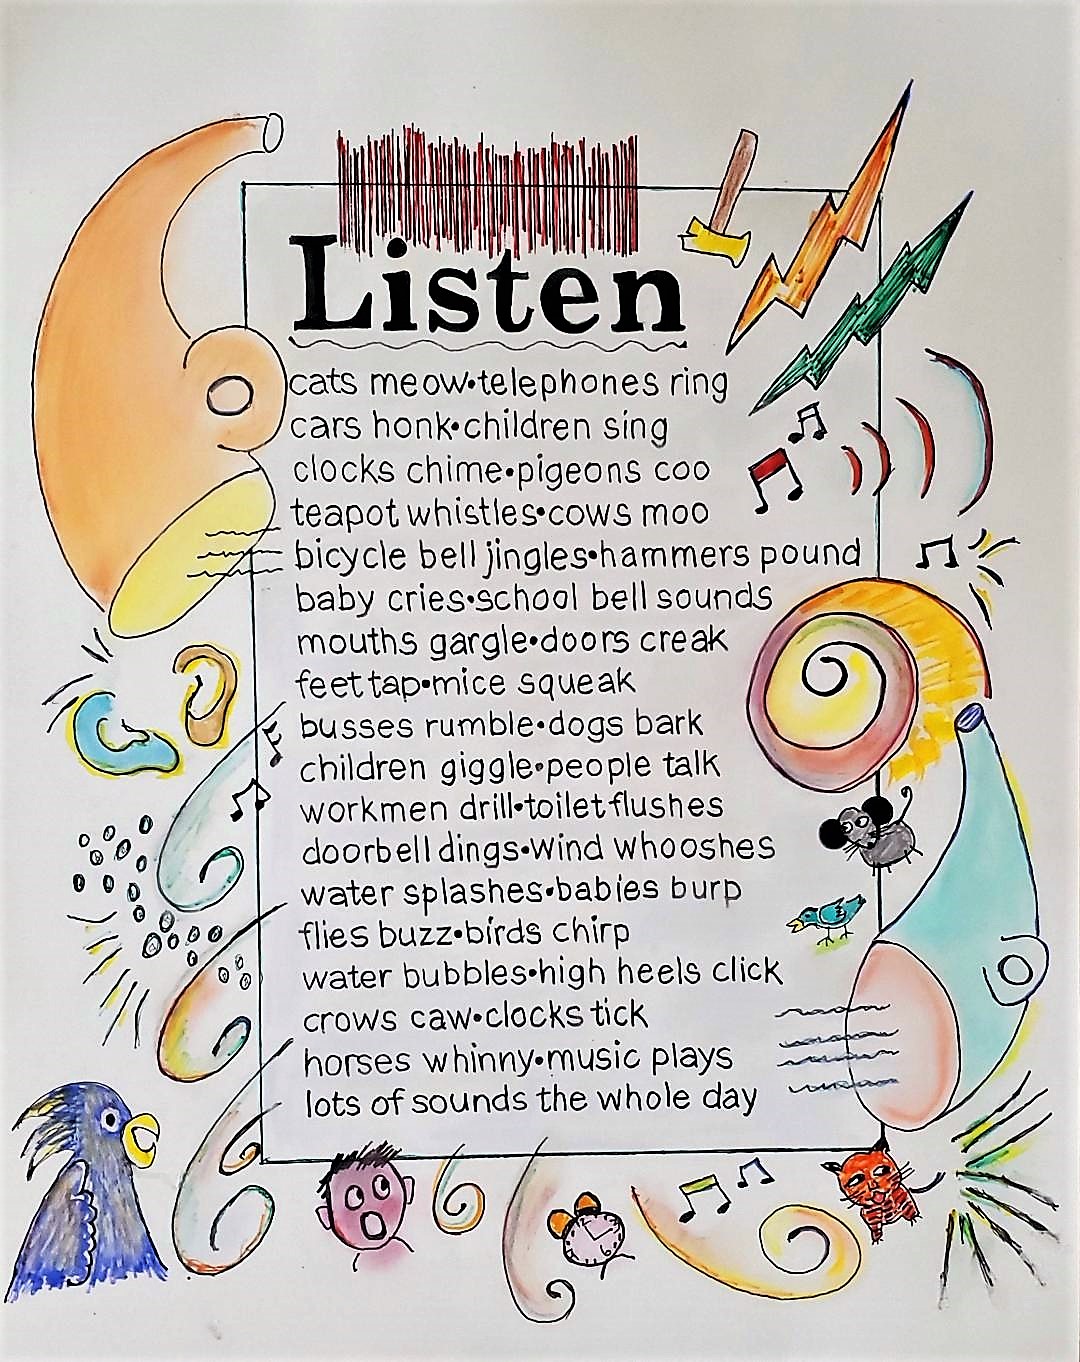 Listen
cats meow•telephones ring
cars honk•children sing
clocks chime•pigeons coo
teapot whistles•cows moo
bicycle bell jingles•hammers pound
baby cries•school bell sounds
mouths gargle•doors creak
feet tap•mice squeak
busses rumble•dogs bark
children giggle•people talk
workmen drill•toilet flushes
doorbell dings•wind whooshes
water splashes•babies burp
flies buzz•birds chirp
water bubbles•high heels click
crows caw•clocks tick
horses whinny•music plays
lots of sounds the whole day